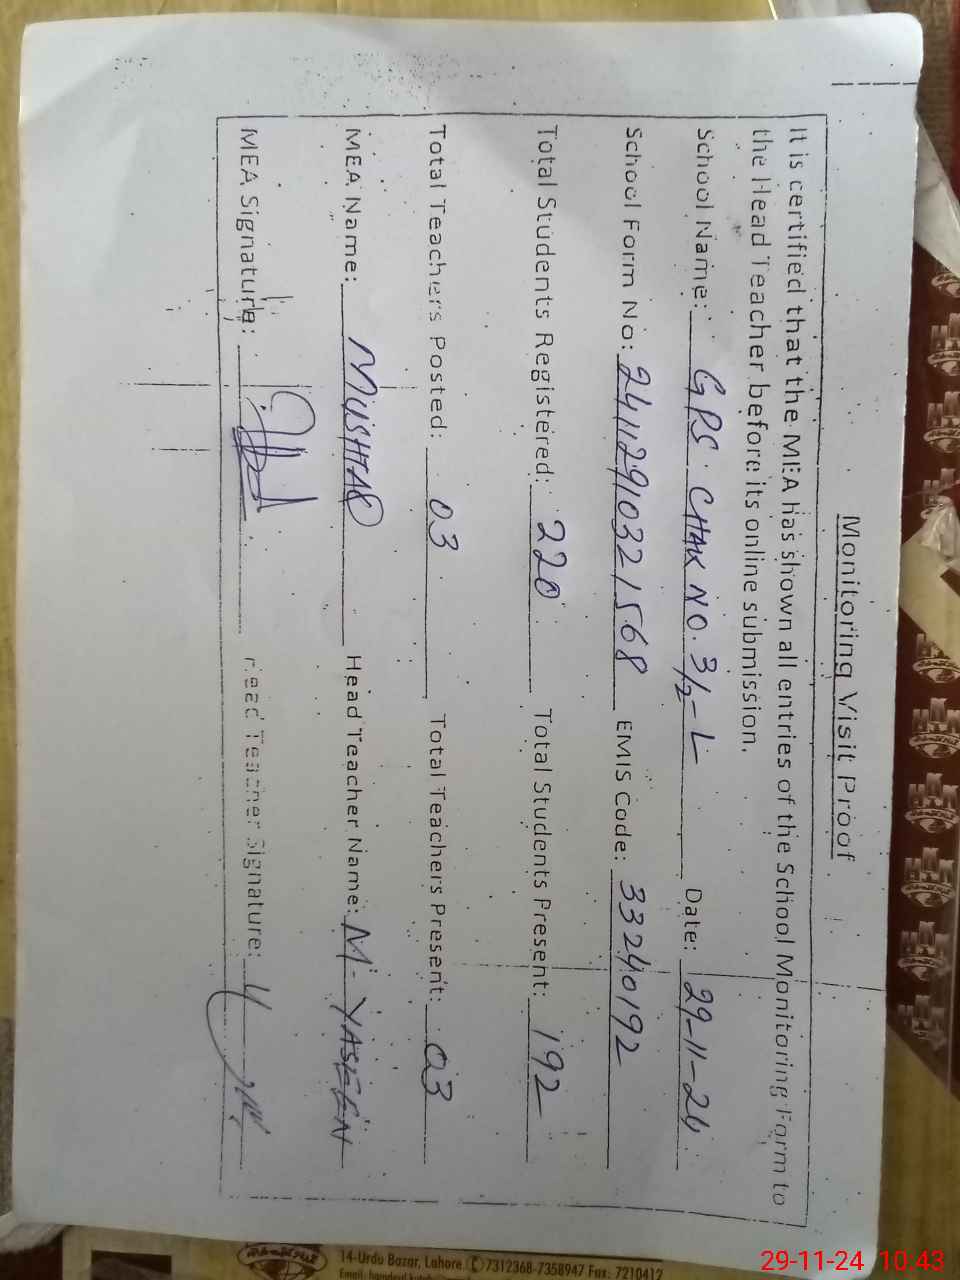 Monitoring Visit Proof
It is certified that the MEA has shown all entries of the School Monitoring Form to
the Head Teacher before its online submission.
School Name: GPS. CHAK NO. 3/2-L Date: 29-11-24
School Form No: 241129103215 68 EMIS Code: 33240192
Total Students Registered: 220 Total Students Present: 192
Total Teachers Posted: 03 Total Teachers Present: 03
MEA Name: MUSHTAQ Head Teacher Name: M. YASEEN
MEA Signature: Head Teacher Signature:
14-Urdu Bazar, Lahore. 7312368-7358947 Fax: 7210412
29-11-24 10:43